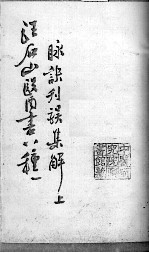 脉訣刊誤集解上
汪石山醫書八種一